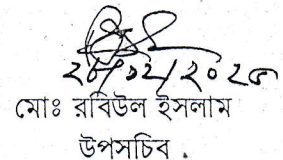 ২৮/১২/২০২৫
মোঃ রবিউল ইসলাম
উপসচিব .